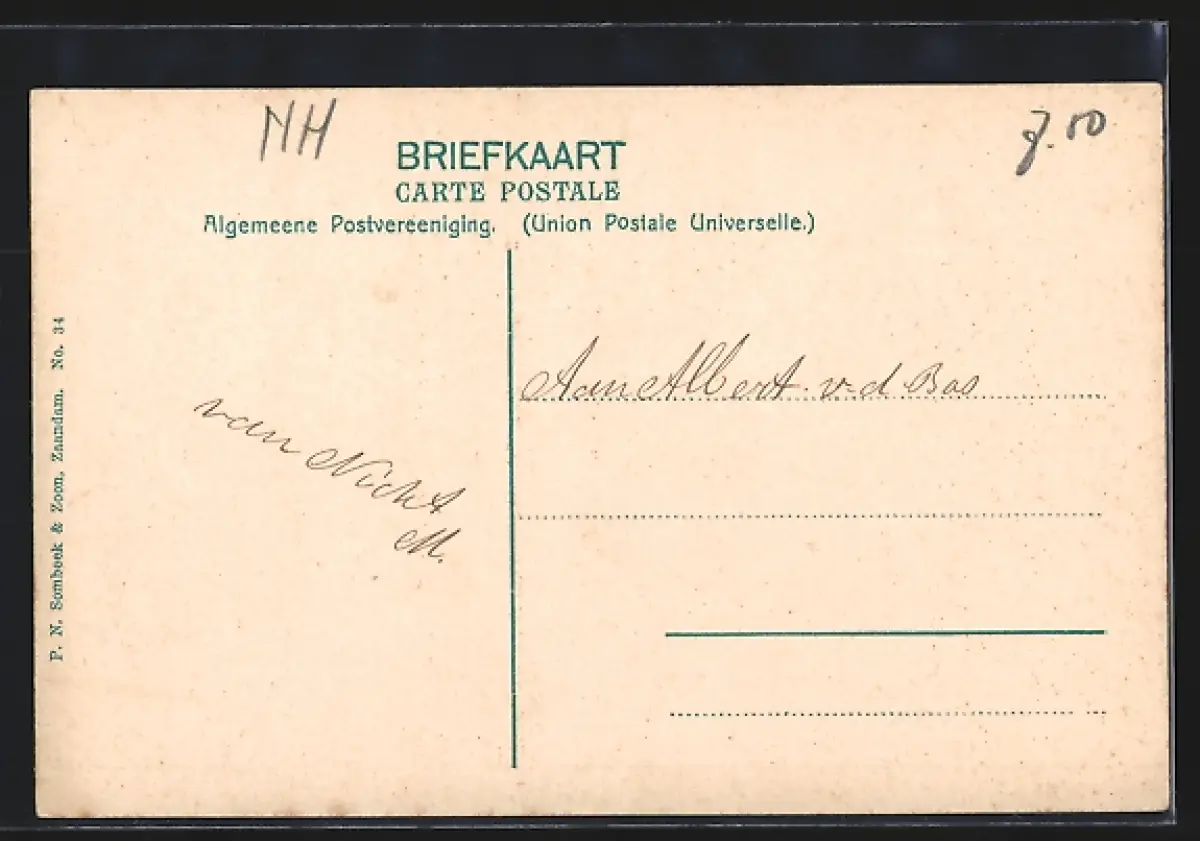 NH
7.50
BRIEFKAART
CARTE POSTALE
Algemeene Postvereeniging. (Union Postale Universelle.)
P. N. Sombeek & Zoon, Zaandam. No. 34
van Nicht
M.
Aan Albert v.d. Bas